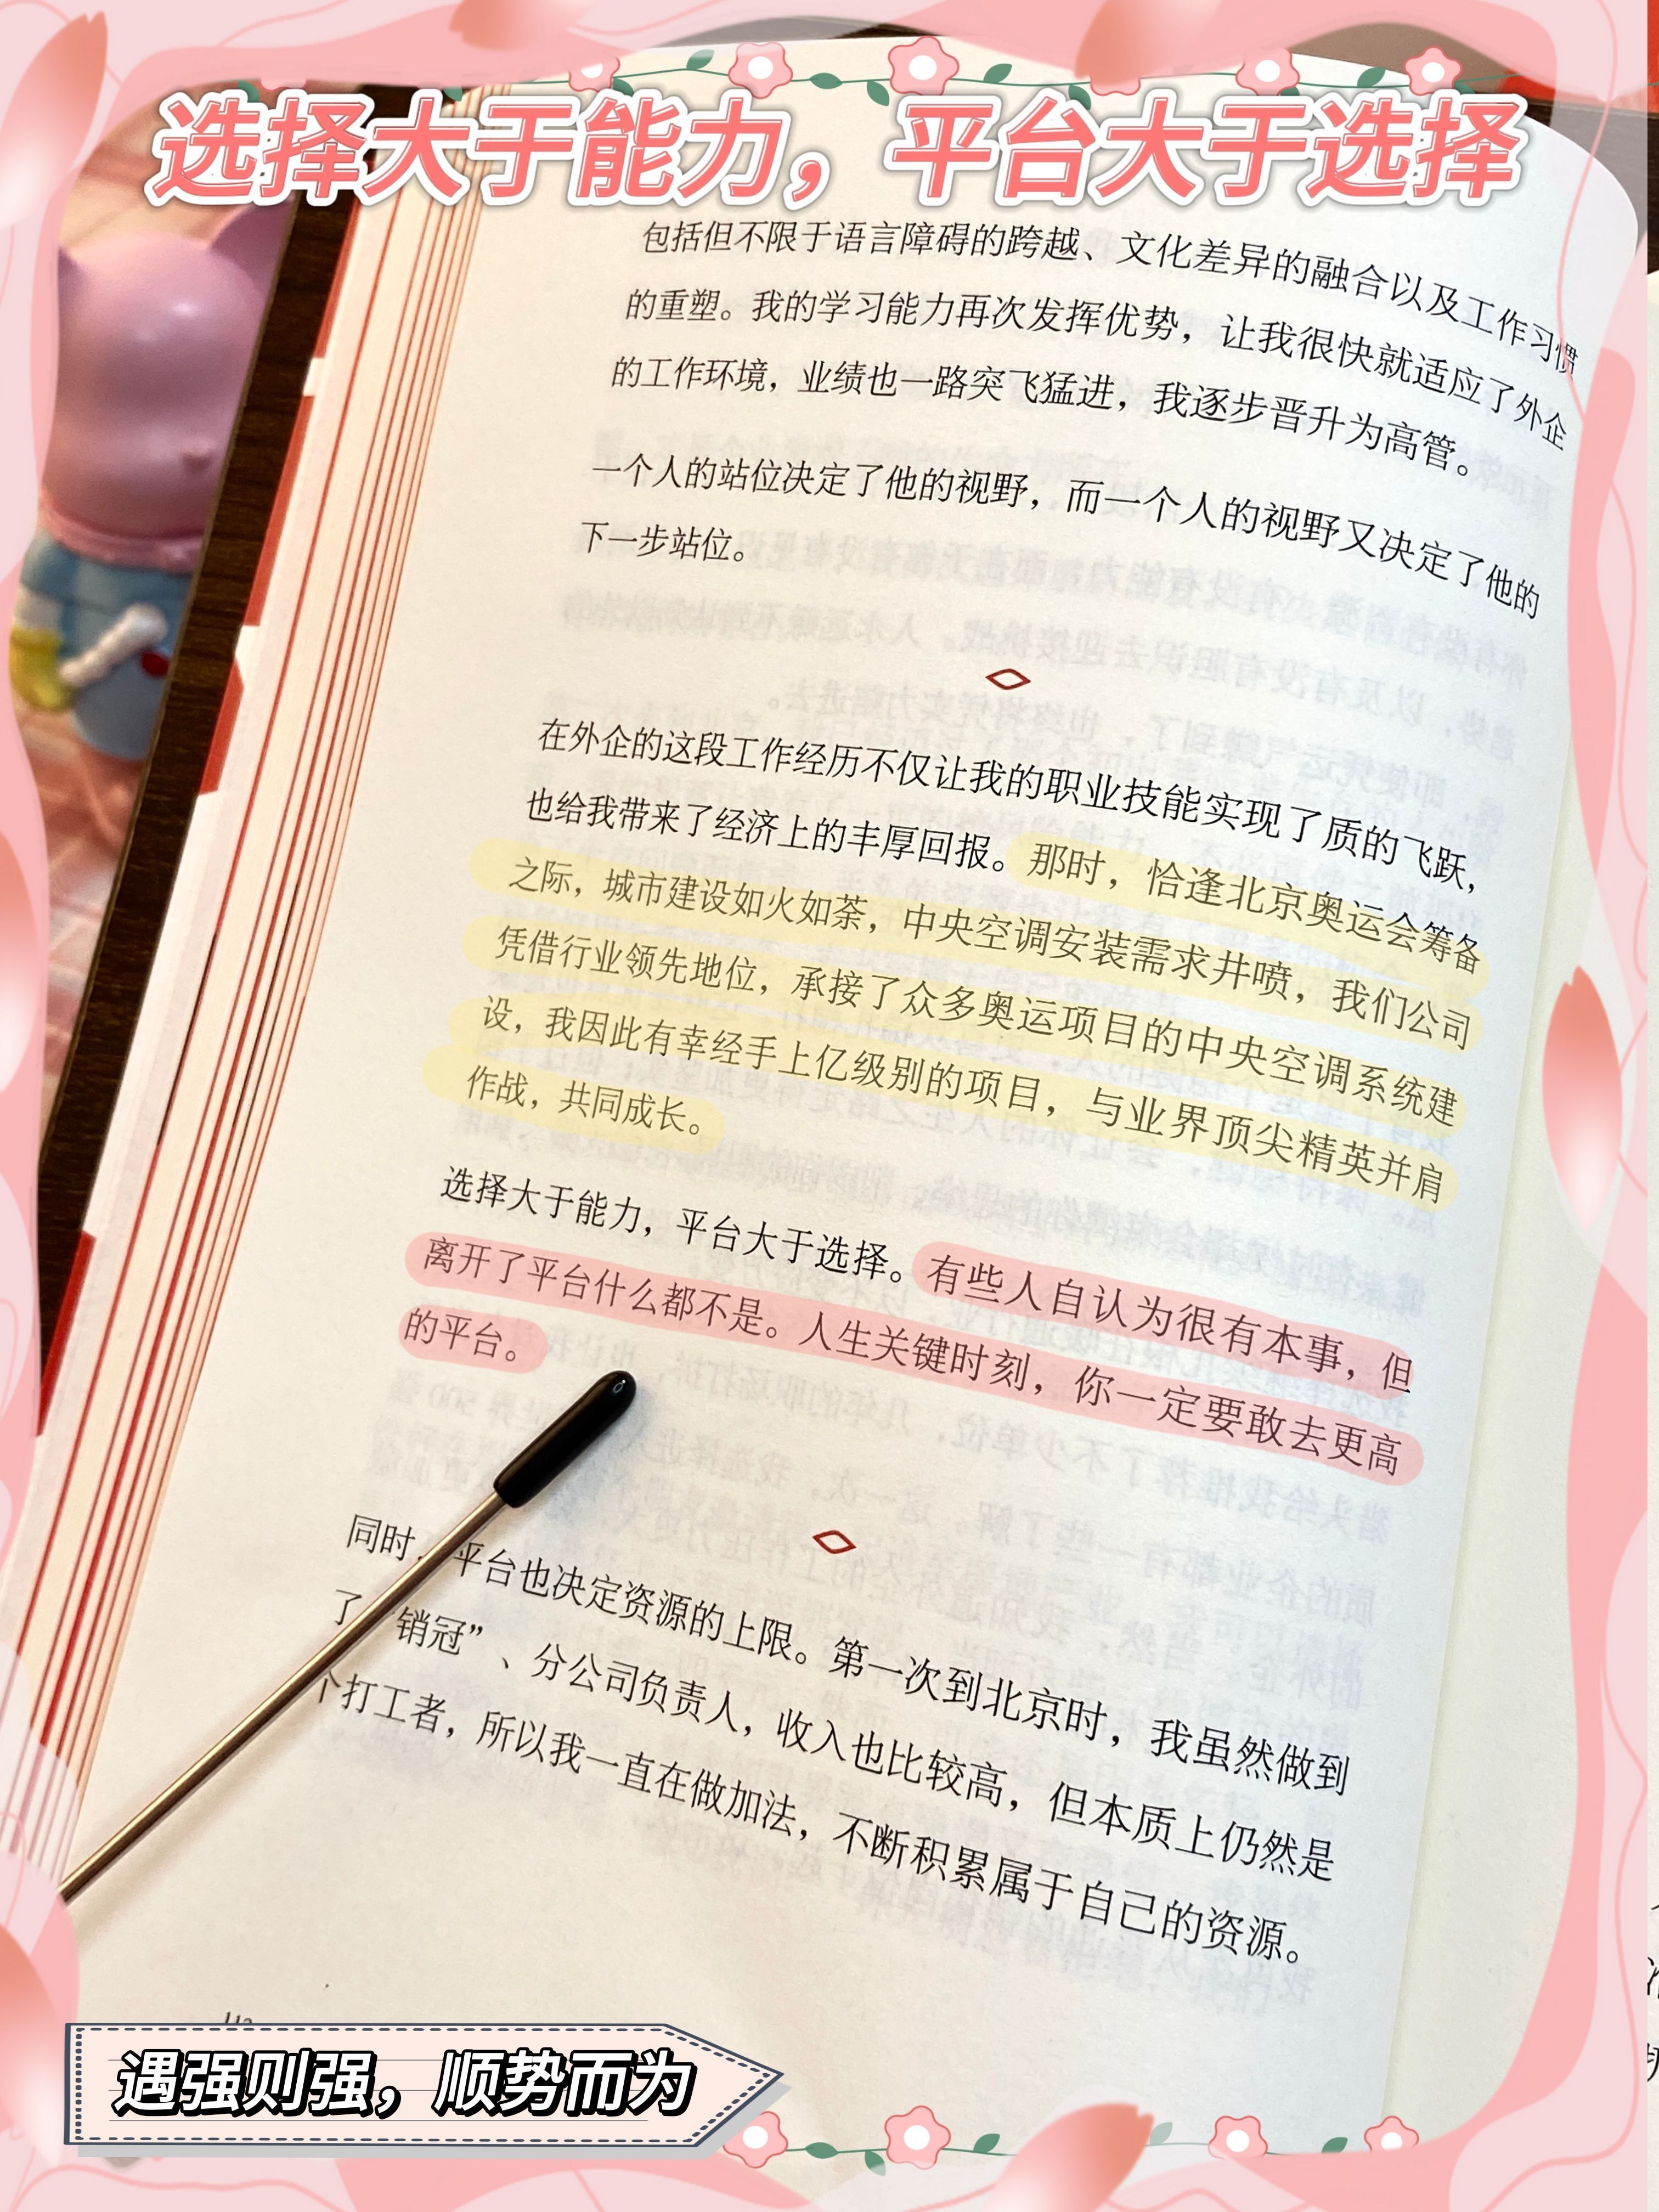 选择大于能力，平台大于选择
包括但不限于语言障碍的跨越、文化差异的融合以及工作习惯
的重塑。我的学习能力再次发挥优势，让我很快就适应了外企
的工作环境，业绩也一路突飞猛进，我逐步晋升为高管。
一个人的站位决定了他的视野，而一个人的视野又决定了他的
下一步站位。
在外企的这段工作经历不仅让我的职业技能实现了质的飞跃，
也给我带来了经济上的丰厚回报。那时，恰逢北京奥运会筹备
之际，城市建设如火如荼，中央空调安装需求井喷，我们公司
凭借行业领先地位，承接了众多奥运项目的中央空调系统建
设，我因此有幸经手上亿级别的项目，与业界顶尖精英并肩
作战，共同成长。
选择大于能力，平台大于选择。有些人自认为很有本事，但
离开了平台什么都不是。人生关键时刻，你一定要敢去更高
的平台。
同时，平台也决定资源的上限。第一次到北京时，我虽然做到
了“销冠”、分公司负责人，收入也比较高，但本质上仍然是
个打工者，所以我一直在做加法，不断积累属于自己的资源。
遇强则强，顺势而为